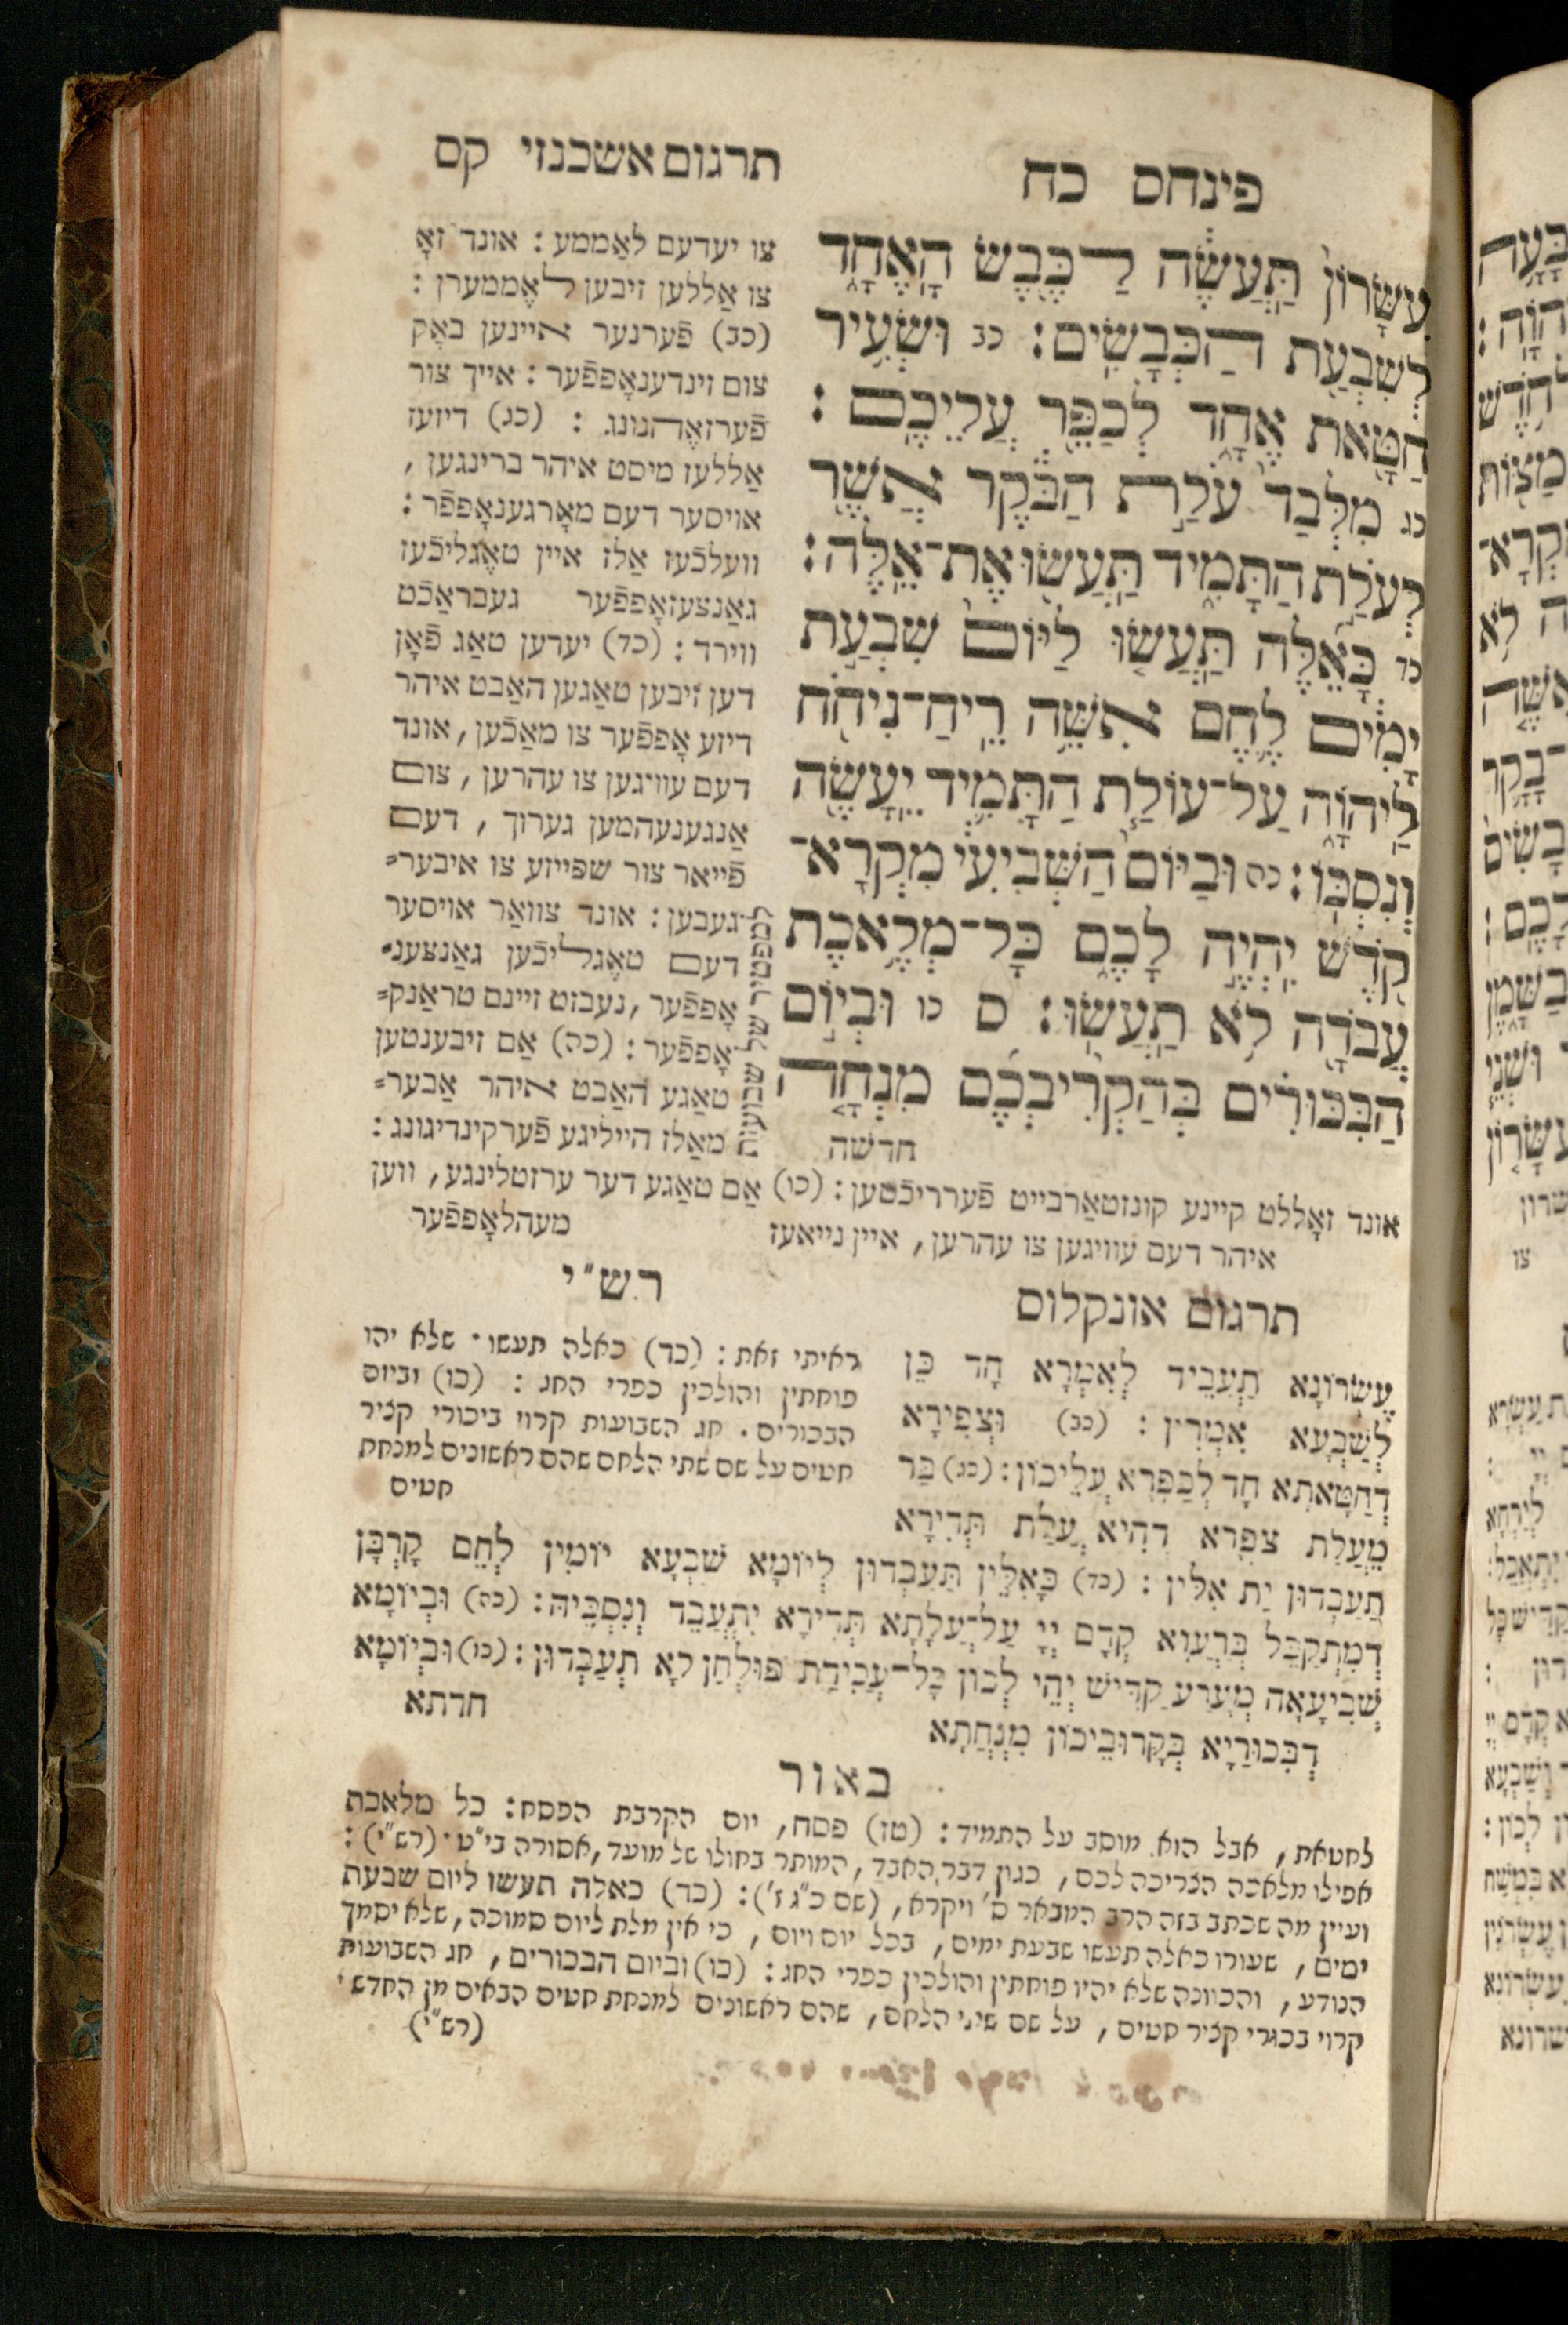 פינחס כח
עִשָּׂרוֹן תַּעֲשֶׂה לַכֶּבֶשׂ הָאֶחָד
לְשִׁבְעַת הַכְּבָשִׂים׃ כב וּשְׂעִיר
חַטָּאת אֶחָד לְכַפֵּר עֲלֵיכֶם׃
כג מִלְּבַד עֹלַת הַבֹּקֶר אֲשֶׁר
לְעֹלַת הַתָּמִיד תַּעֲשׂוּ אֶת־אֵלֶּה׃
כד כָּאֵלֶּה תַּעֲשׂוּ לַיּוֹם שִׁבְעַת
יָמִים לֶחֶם אִשֵּׁה רֵיחַ־נִיחֹחַ
לַיהוָה עַל־עוֹלַת הַתָּמִיד יֵעָשֶׂה
וְנִסְכּוֹ׃ כה וּבַיּוֹם הַשְּׁבִיעִי מִקְרָא־
קֹדֶשׁ יִהְיֶה לָכֶם כָּל־מְלֶאכֶת
עֲבֹדָה לֹא תַעֲשׂוּ׃ ס כו וּבְיוֹם
הַבִּכּוּרִים בְּהַקְרִיבְכֶם מִנְחָה
חדשה
תרגום אשכנזי קס
צו יעדעם לאַממע: אונד זאָ
צו אַללען זיבען לאֶממערן:
(כב) פֿערנער איינען באָק
צום זינדענאָפּפֿער: אייך צור
פֿערזאֶהנונג: (כג) דיזעז
אַללעז מיסט איהר ברינגען,
אויסער דעם מאָרגענאָפּפֿר:
וועלכֿעז אַלז איין טאֶגליכֿעז
גאַנצעזאָפּפֿער געבראַכֿט
ווירד: (כד) יעדען טאַג פֿאָן
דען זיבען טאַגען האַבט איהר
דיזע אָפּפֿער צו מאַכֿען, אונד
דעם עוויגען צו עהרען, צום
אַנגענעהמען גערוך, דעם
פֿייאר צור שפייזע צו איבער=
געבען: אונד צוואַר אויסער
דעם טאֶגליכֿען גאַנצענ=
אָפּפֿער, נעבזט זיינם טראַנק=
אָפּפֿער: (כה) אַם זיבענטען
טאַגע האַבט איהר אַבער=
מאַלז הייליגע פֿערקינדיגונג:
למפטיר של שבועות
אונד זאָללט קיינע קונזטאַרבייט פֿערריכֿטען: (כו) אַם טאַגע דער ערזטלינגע, ווען
איהר דעם עוויגען צו עהרען, איין נייאעז
מעהלאָפּפֿער
תרגום אונקלוס
עֶשְׂרוֹנָא תַּעְבֵיד לְאִמְּרָא חָד כֵּן
לְשַׁבְעָא אִמְּרִין: (כב) וּצְפִירָא
דְחַטָּאתָא חַד לְכַפָּרָא עֲלֵיכוֹן: (כג) בַּר
מֵעֲלַת צַפְרָא דְהִיא עֲלַת תְּדִירָא
תַּעְבְּדוּן יַת אִלֵּין: (כד) כָּאִלֵּין תַּעְבְּדוּן לְיוֹמָא שִׁבְעָא יוֹמִין לְחֵם קָרְבַּן
דְמִתְקַבֵּל בְּרַעֲוָא קֳדָם יְיָ עַל־עֲלָתָא תְּדִירָא יִתְעֲבֵד וְנִסְכֵּיהּ: (כה) וּבְיוֹמָא
שְׁבִיעָאָה מְעָרַע קַדִּישׁ יְהֵי לְכוֹן כָּל־עֲבִידַת פּוּלְחַן לָא תַעְבְּדוּן: (כו) וּבְיוֹמָא
דְבִכּוּרַיָּא בְּקָרוֹבֵיכוֹן מִנְחָתָא
חדתא
רש״י
ראיתי זאת: (כד) כאלה תעשו. שלא יהו
פוחתין והולכין כפרי החג: (כו) וביום
הבכורים. חג השבועות קרוי ביכורי קציר
חטים על שם שתי הלחם שהם ראשונים למנחת
חטים
באור
לחטאת, אבל הוא מוסב על התמיד: (טז) פסח, יום הקרבת הפסח: כל מלאכת
אפילו מלאכה הצריכה לכם, כגון דבר האבד, המותר בחולו של מועד, אסורה בי״ט. (רש״י):
ועיין מה שכתב בזה הרב המבאר ס׳ ויקרא, (שם כ״ג ז׳): (כד) כאלה תעשו ליום שבעת
ימים, שעורו כאלה תעשו שבעת ימים, בכל יום ויום, כי אין מלת ליום סמוכה, שלא יסמך
הנודע, והכוונה שלא יהיו פוחתין והולכין כפרי החג: (כו) וביום הבכורים, חג השבועות
קרוי בכורי קציר חטים, על שם שיני הלחם, שהם ראשונים למנחת חטים הבאים מן החדש.
(רש״י)